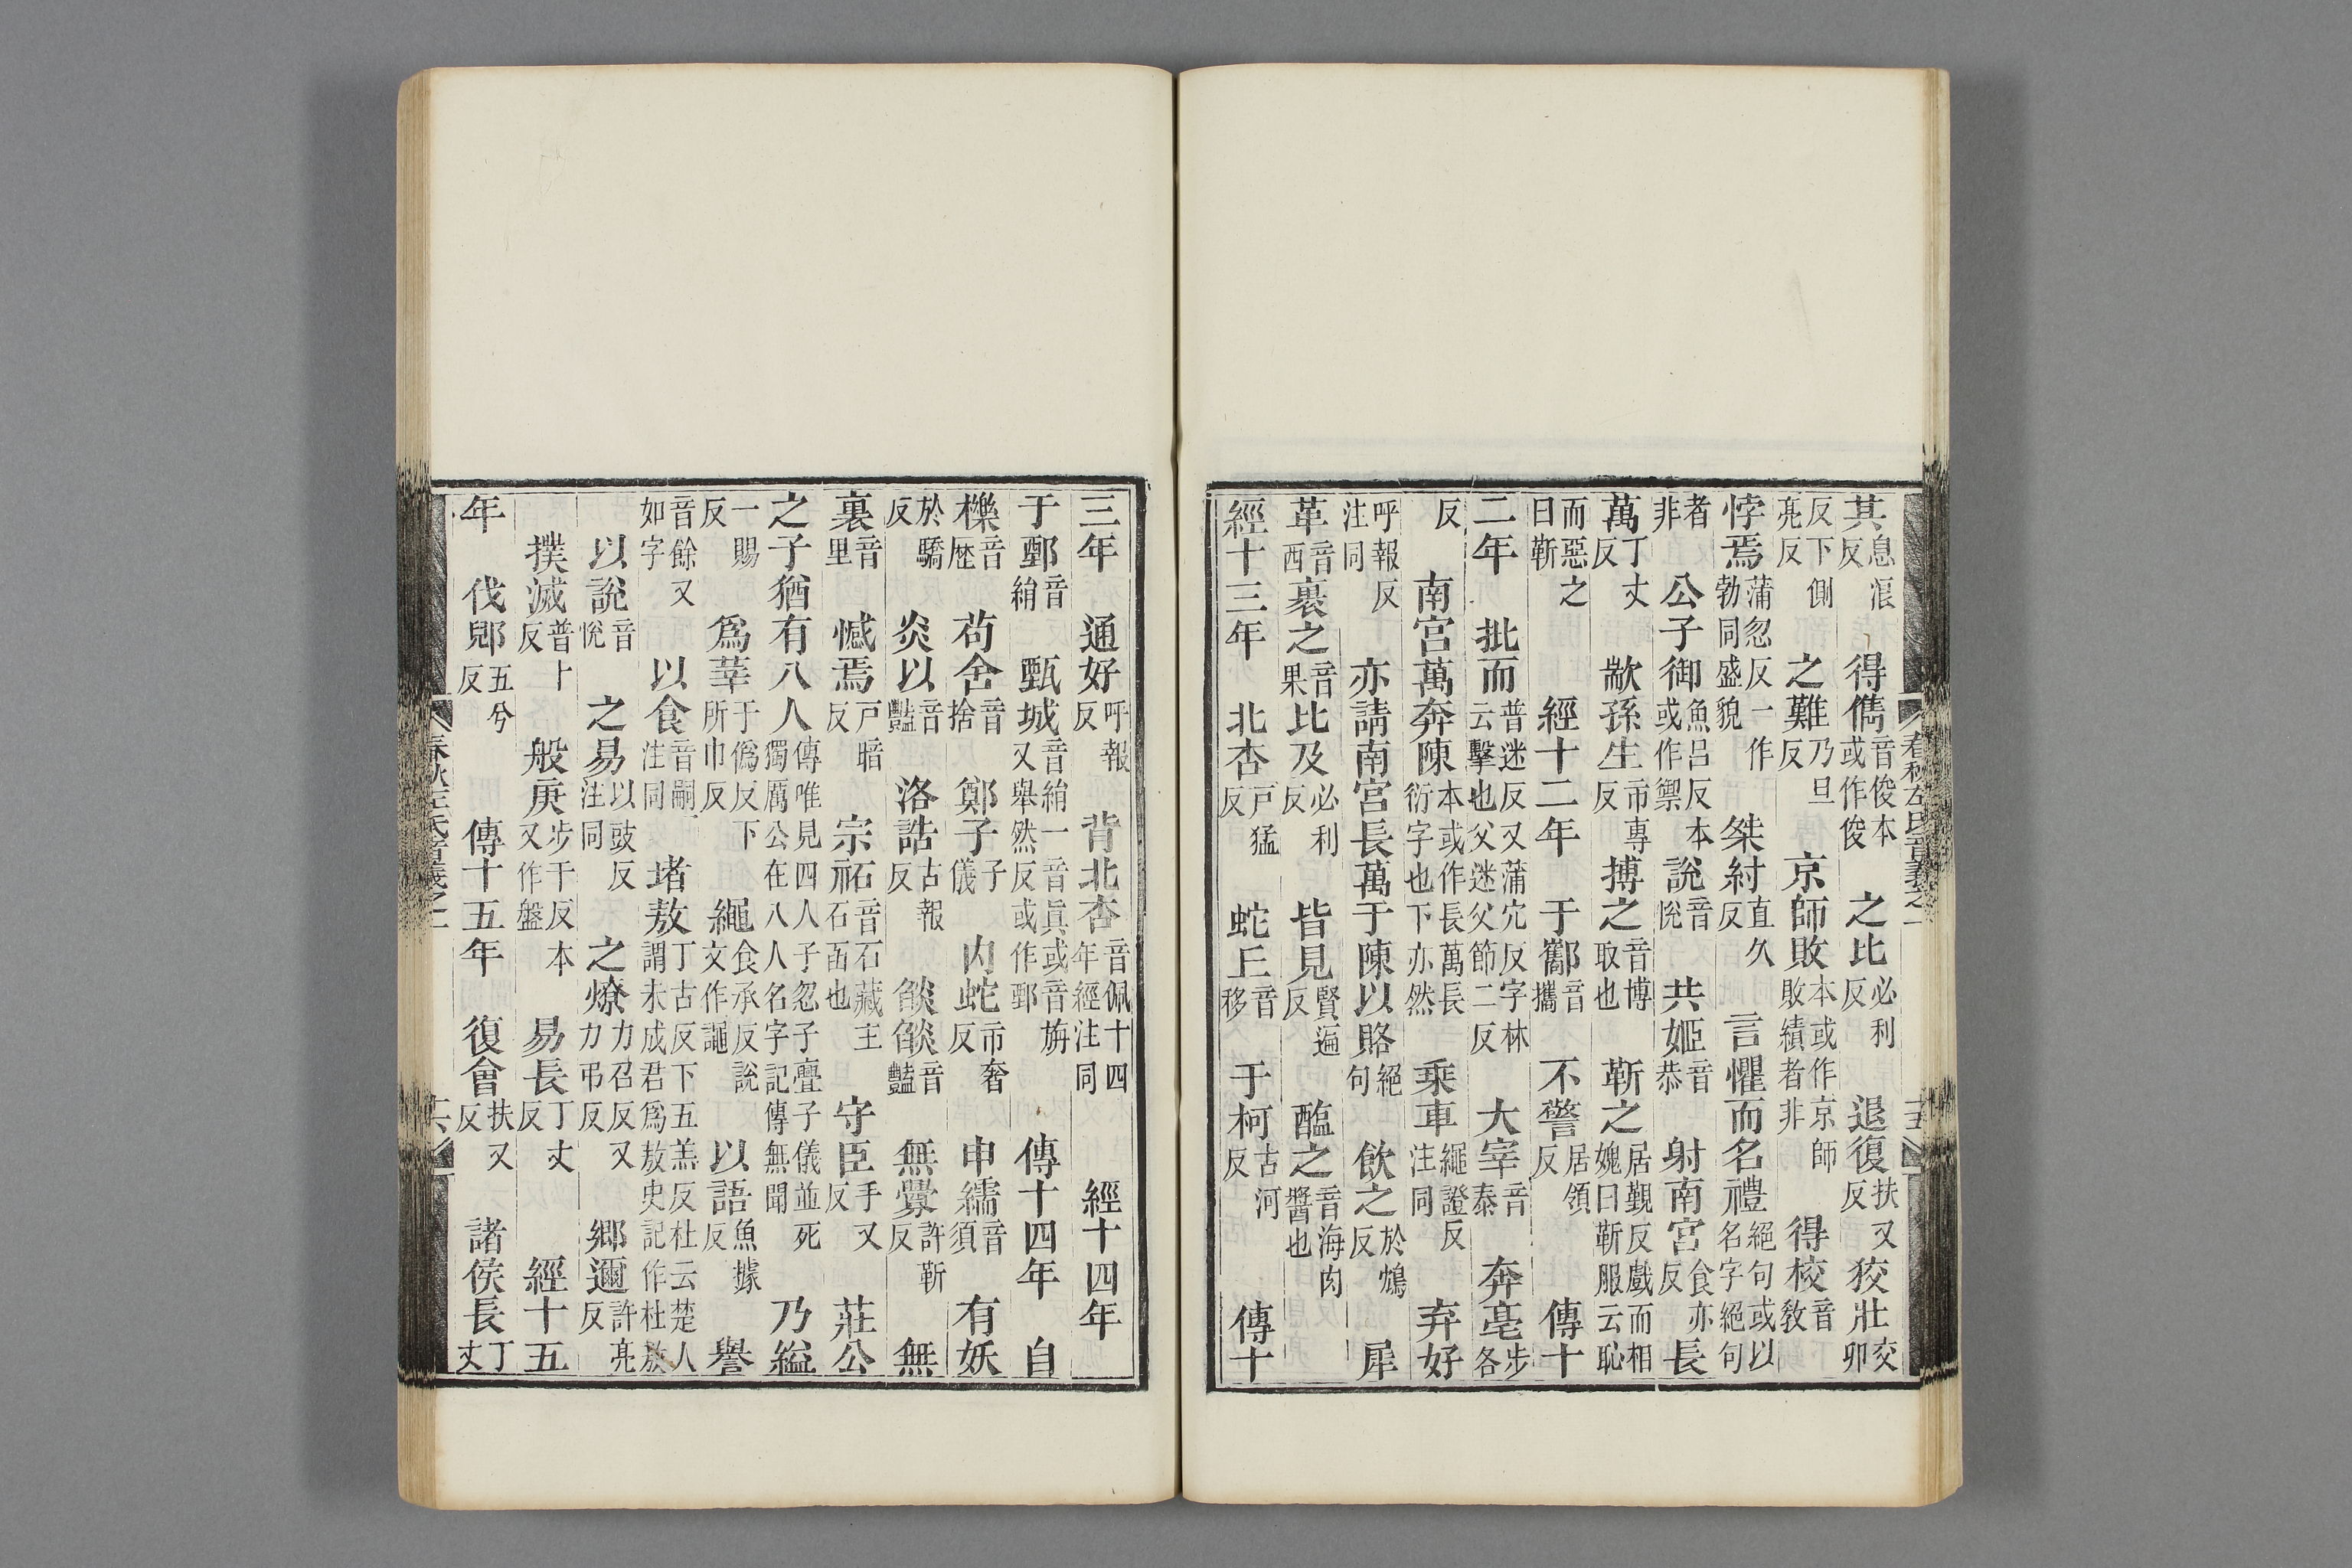 其息浪反　得儁音俊本或作俊　之比必利反　退復扶又反　狡壯交卯
反下側亮反　之難乃旦反　京師敗本或作京師敗績者非　得校音敎
悖焉蒲忽反一作勃同盛貌　桀紂直久反　言懼而名禮絕句或以名字絕句
者非　公子御魚呂反本或作禦　說音悅　共姬音恭　射南宮食亦反　長
萬丁丈反　歂孫生市專反　搏之音博取也　靳之居覲反戲而相媿曰靳服云恥
而惡之曰靳　經十二年　于酅音攜　不警居領反　傳十
二年　批而普迷反又蒲穴反字林云擊也父迷父節二反　大宰音泰　奔亳步各
反　南宮萬奔陳本或作長萬長衍字也下亦然　乘車繩證反注同　弃好
呼報反注同　亦請南宮長萬于陳以賂絕句　飲之於鴆反　犀
革音西　裹之音果　比及必利反　皆見賢遍反　醢之音海肉醬也
經十三年　北杏戸猛反　蛇丘音移　于柯古河反　傳十
三年　通好呼報反　背北杏音佩十四年經注同　經十四年
于鄄音絹　甄城音絹一又舉然反一音眞或音旃或作鄄　傳十四年　自
櫟音歷　苟舍音捨　鄭子子儀　内蛇市奢反　申繻音須　有妖
於驕反　炎以音豔　洛誥古報反　燄燄音豔　無釁許靳反　無
裏音里　憾焉戸暗反　宗祏音石藏主石函也　守臣手又反　莊公
之子猶有八人傳唯見四人子忽子亹子儀並死獨厲公在八人名字記傳無聞　乃縊
一賜反　爲莘于僞反下所巾反　繩食承反說文作譝　以語魚據反　譽
音餘又如字　以食音嗣注同　堵敖丁古反下五羔反杜云楚人謂未成君爲敖史記作杜敖
以說音悅　之易以豉反注同　之燎力召反又力弔反　鄉邇許亮反
撲滅普卜反　般庚步干反本又作盤　易長丁丈反　經十五
年　伐郳五兮反　傳十五年　復會扶又反　諸侯長丁丈